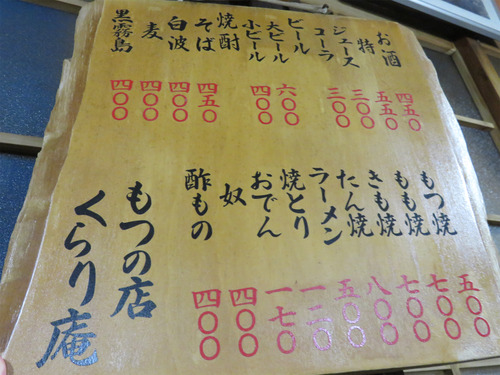 お酒 四五〇
特 五五〇
ジュース 三〇〇
コーラ 三〇〇
ビール
大ビール 六〇〇
小ビール 四〇〇
焼酎
そば 四五〇
白波 四〇〇
麦 四〇〇
黒霧島 四〇〇
もつ焼 五〇〇
もも焼 七〇〇
きも焼 七〇〇
たん焼 八〇〇
ラーメン 五〇〇
焼とり 一二〇
おでん 一七〇
奴 四〇〇
酢もの 四〇〇
もつの店
くらり庵